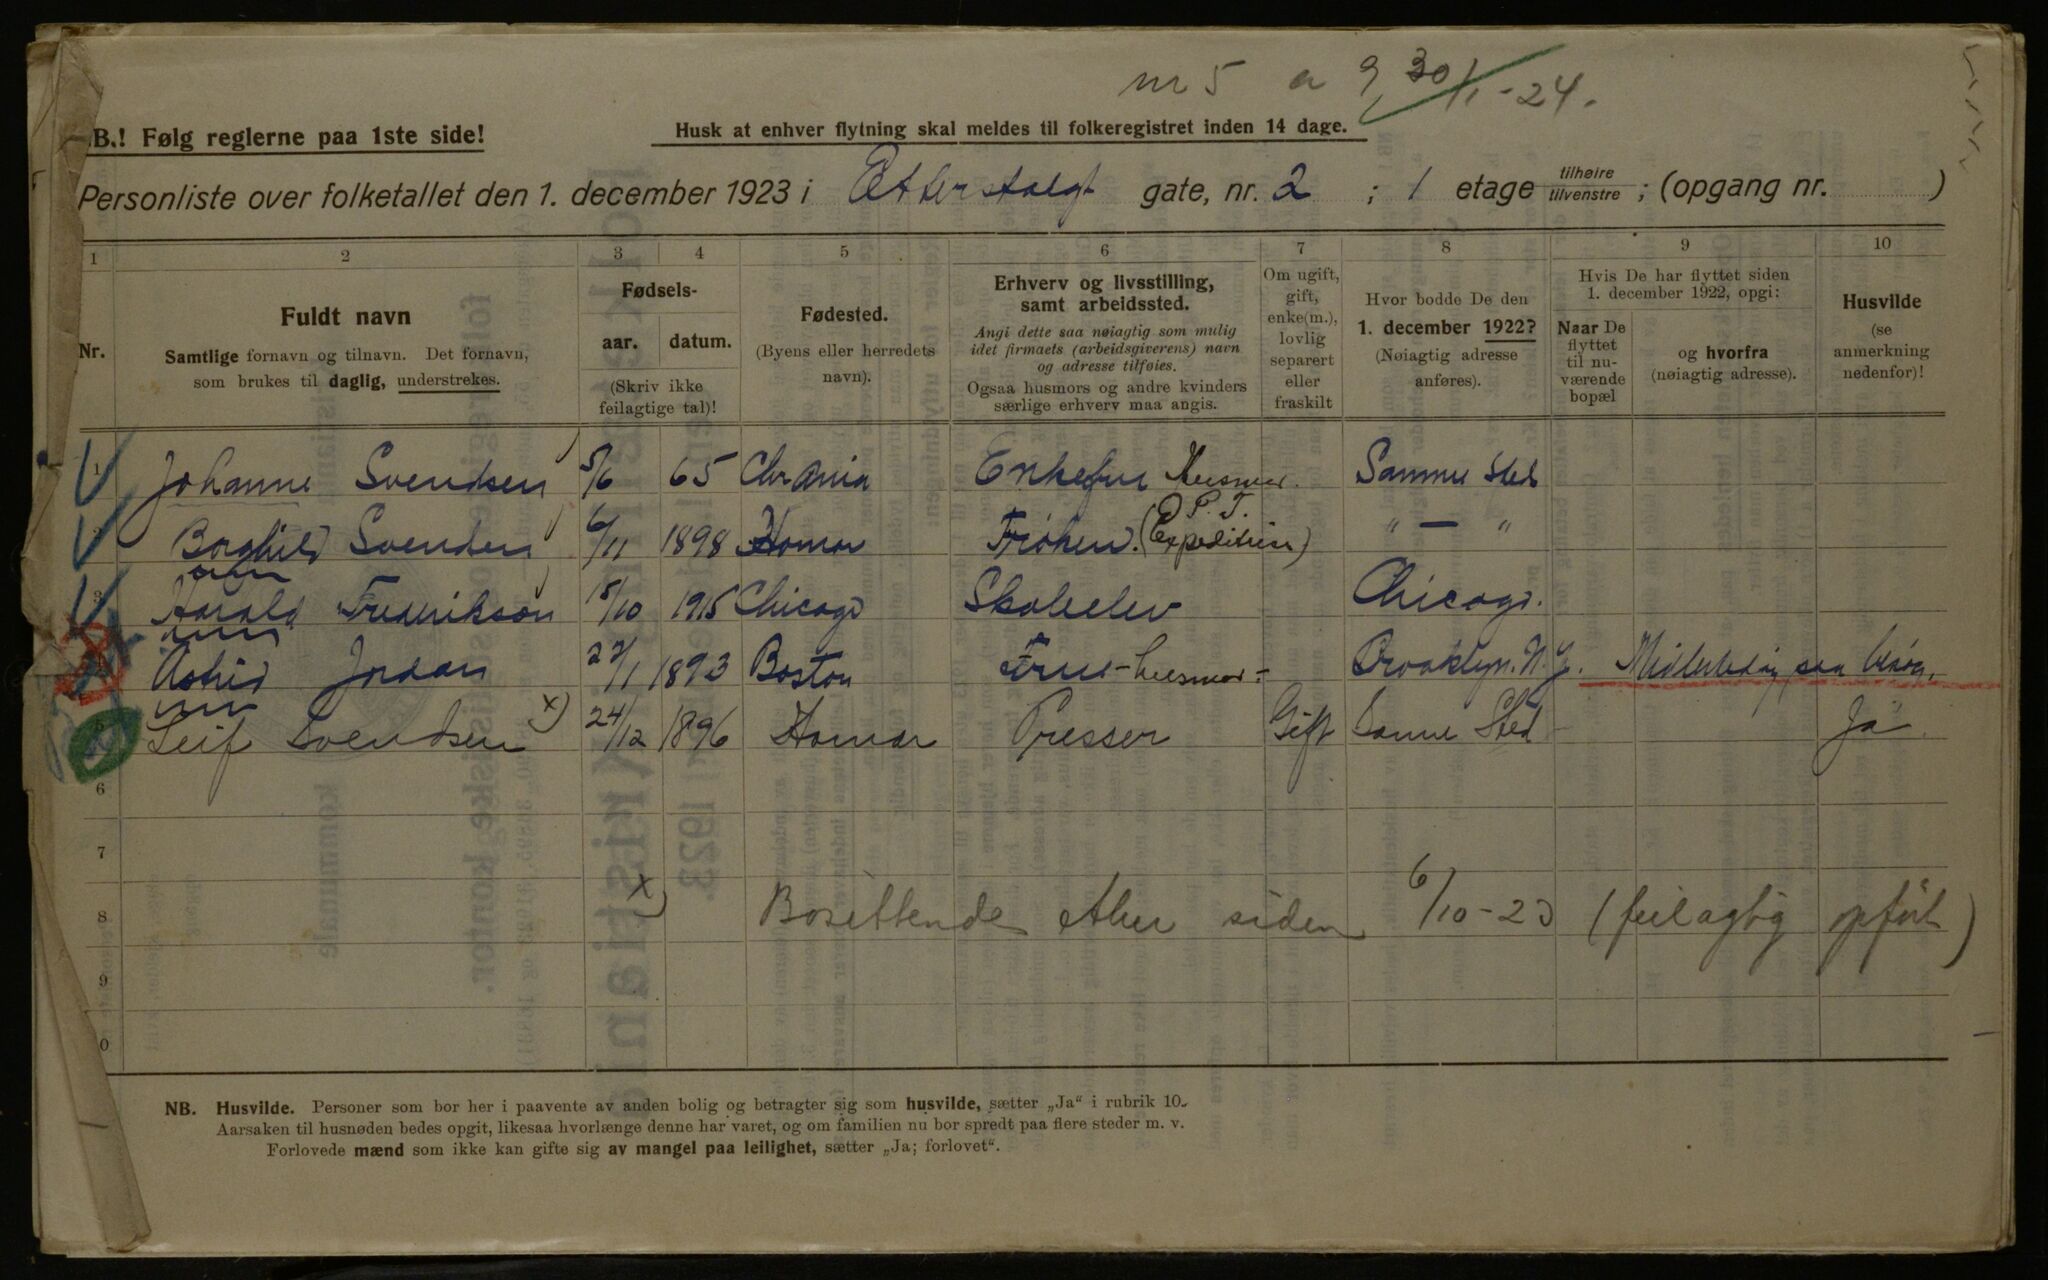 nr 5 a 9 30/1-24.
NB.! Følg reglerne paa 1ste side!
Husk at enhver flytning skal meldes til folkeregistret inden 14 dage.
Personliste over folketallet den 1. december 1923 i Etterstadgt gate, nr. 2 ; 1 etage tilhøire tilvenstre ; (opgang nr. )
1 2 3 4 5 6 7 8 9 10
Nr.
Fuldt navn
Samtlige fornavn og tilnavn. Det fornavn,
som brukes til daglig, understrekes.
Fødsels-
aar. datum.
(Skriv ikke
feilagtige tal)!
Fødested.
(Byens eller herredets
navn).
Erhverv og livsstilling,
samt arbeidssted.
Angi dette saa nøiagtig som mulig
idet firmaets (arbeidsgiverens) navn
og adresse tilføies.
Ogsaa husmors og andre kvinders
særlige erhverv maa angis.
Om ugift,
gift,
enke(m.),
lovlig
separert
eller
fraskilt
Hvor bodde De den
1. december 1922?
(Nøiagtig adresse
anføres).
Hvis De har flyttet siden
1. december 1922, opgi:
Naar De
flyttet
til nu-
værende
bopæl
og hvorfra
(nøiagtig adresse).
Husvilde
(se
anmerkning
nedenfor)!
1 Johanne Svendsen 5/6 65 Chrania Enkefru Husmor. Samme Sted
2 Borghild Svendsen 6/11 1898 Hamar Frøken. (P. T. Expeditrice) " — "
3 Harald Frederikson 18/10 1915 Chicago Skoleelev Chicago.
4 Astrid Jordan 27/1 1893 Boston Frue - husmor - Brooklyn. N. Y. Midlertidig paa besøg.
5 Leif Svendsen x) 24/12 1896 Hamar Presser Gift Samme Sted Ja
6
7
8 x) Bosittende Aker siden 6/10-23 (feilagtig opført)
9
0
NB. Husvilde. Personer som bor her i paavente av anden bolig og betragter sig som husvilde, sætter „Ja“ i rubrik 10.
Aarsaken til husnøden bedes opgit, likesaa hvorlænge denne har varet, og om familien nu bor spredt paa flere steder m. v.
Forlovede mænd som ikke kan gifte sig av mangel paa leilighet, sætter „Ja; forlovet“.